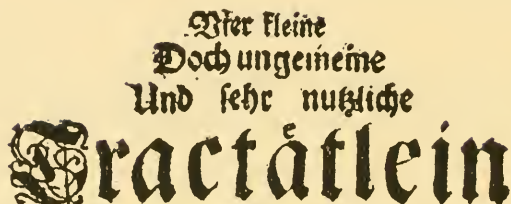 Vier kleine
Doch ungemeine
Und sehr nutzliche
Tractaͤtlein